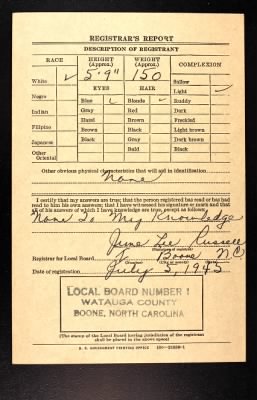 REGISTRAR'S REPORT
DESCRIPTION OF REGISTRANT
RACE HEIGHT (Approx.) WEIGHT (Approx.) COMPLEXION
White ✓ 5' 9" 150 Sallow
EYES HAIR Light ✓
Negro Blue ✓ Blonde ✓ Ruddy
Indian Gray Red Dark
Hazel Brown Freckled
Filipino Brown Black Light brown
Japanese Black Gray Dark brown
Other Oriental Bald Black
Other obvious physical characteristics that will aid in identification
None
I certify that my answers are true; that the person registered has read or has had
read to him his own answers; that I have witnessed his signature or mark and that
all of his answers of which I have knowledge are true, except as follows:
None To My Knowledge
June Lee Russell
(Signature of registrar)
Registrar for Local Board 1 Boone NC
(Number) (City or county) (State)
Date of registration July 5, 1945
LOCAL BOARD NUMBER 1
WATAUGA COUNTY
BOONE, NORTH CAROLINA
(The stamp of the Local Board having jurisdiction of the registrant
shall be placed in the above space)
U. S. GOVERNMENT PRINTING OFFICE